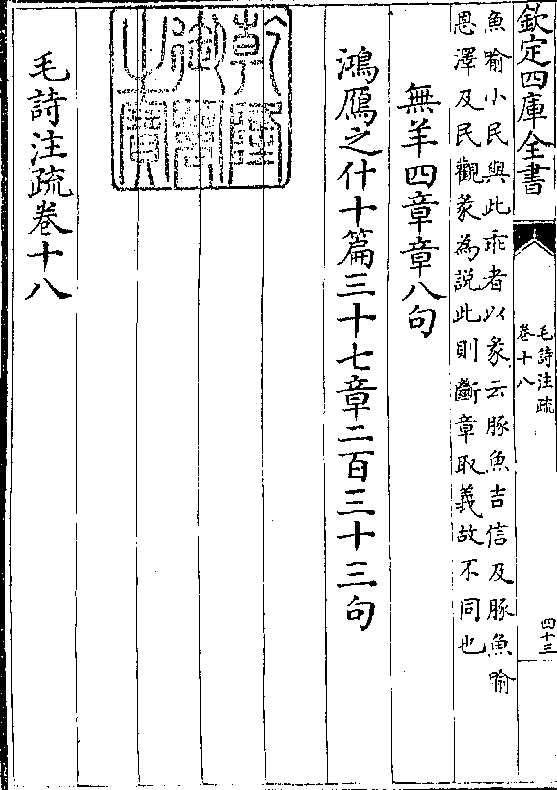 欽定四庫全書
毛詩注疏
卷十八
四十三
魚喻小民與此乖者以彖云豚魚吉信及豚魚喻
恩澤及民觀彖為説此則斷章取義故不同也
無羊四章章八句
鴻鴈之什十篇三十七章二百三十三句
乾隆
御覽
之寶
毛詩注疏卷十八